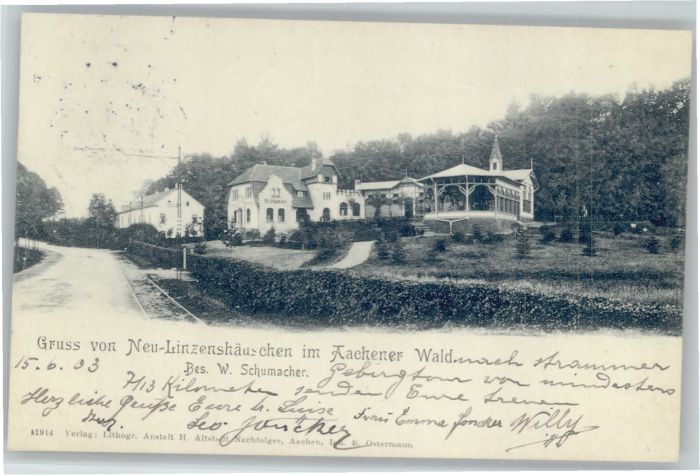 Restaurant
Gruss von Neu-Linzenshäuschen im Aachener Wald.
nach strammer
15.6.03
Bes. W. Schumacher.
Gebirgstour von mindestens
7/13 Kilometer senden Eure treuen
Herzliche Grüße Eure h. Luise
Leo Joncker
Frau Emma Joncker
Willy
41914 Verlag: Lithogr. Anstalt H. Altstadt Nachfolger, Aachen, Inh. E. Ostermann.